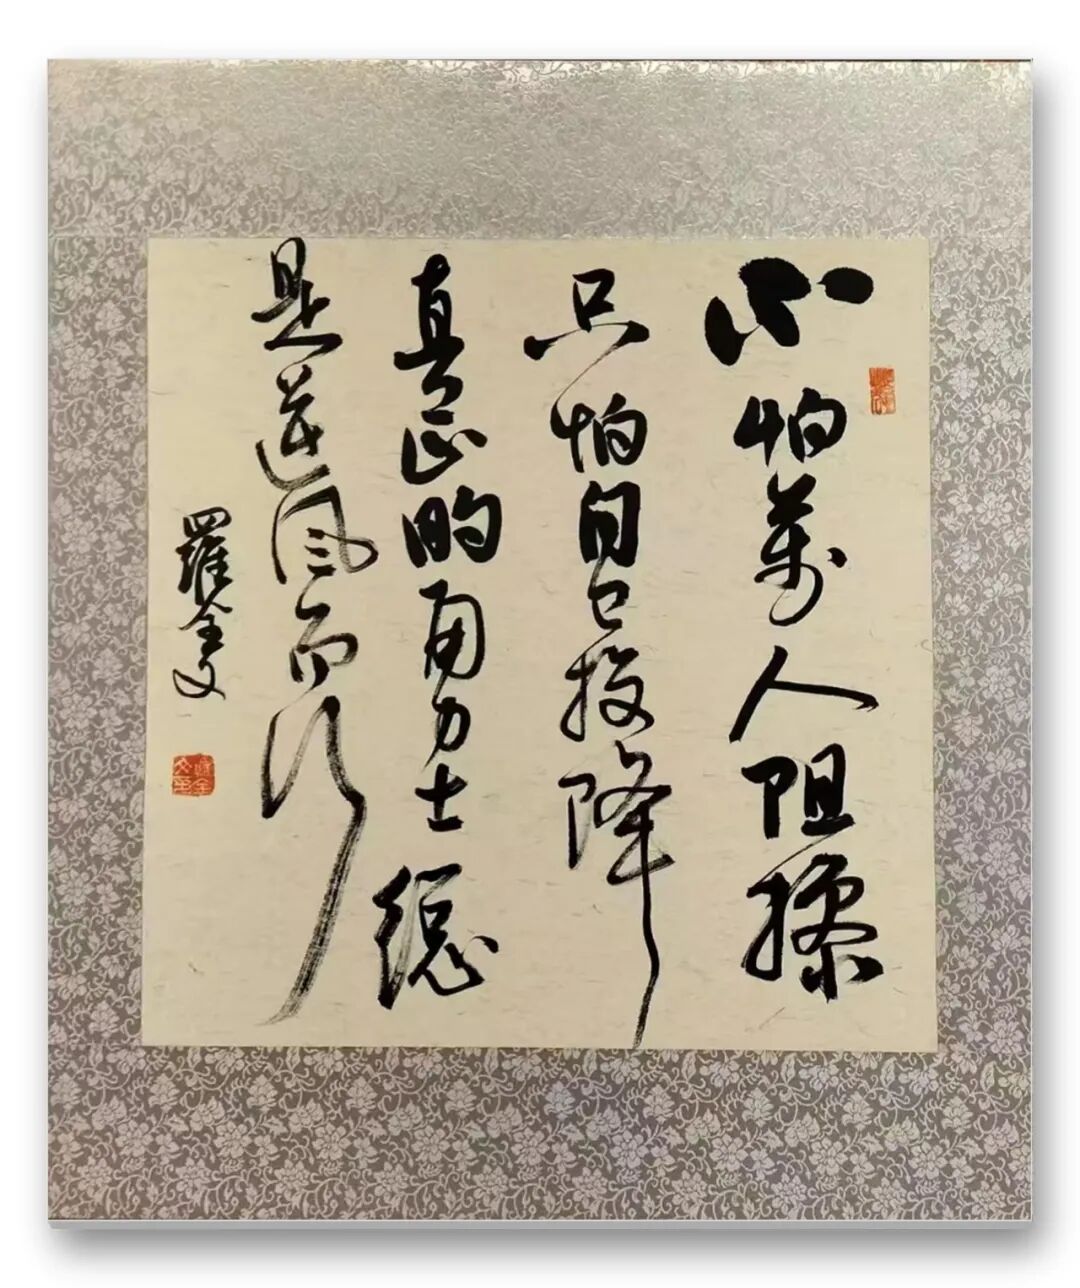 不怕萬人阻撓
只怕自己投降
真正的勇士總
是逆風而行
羅全文